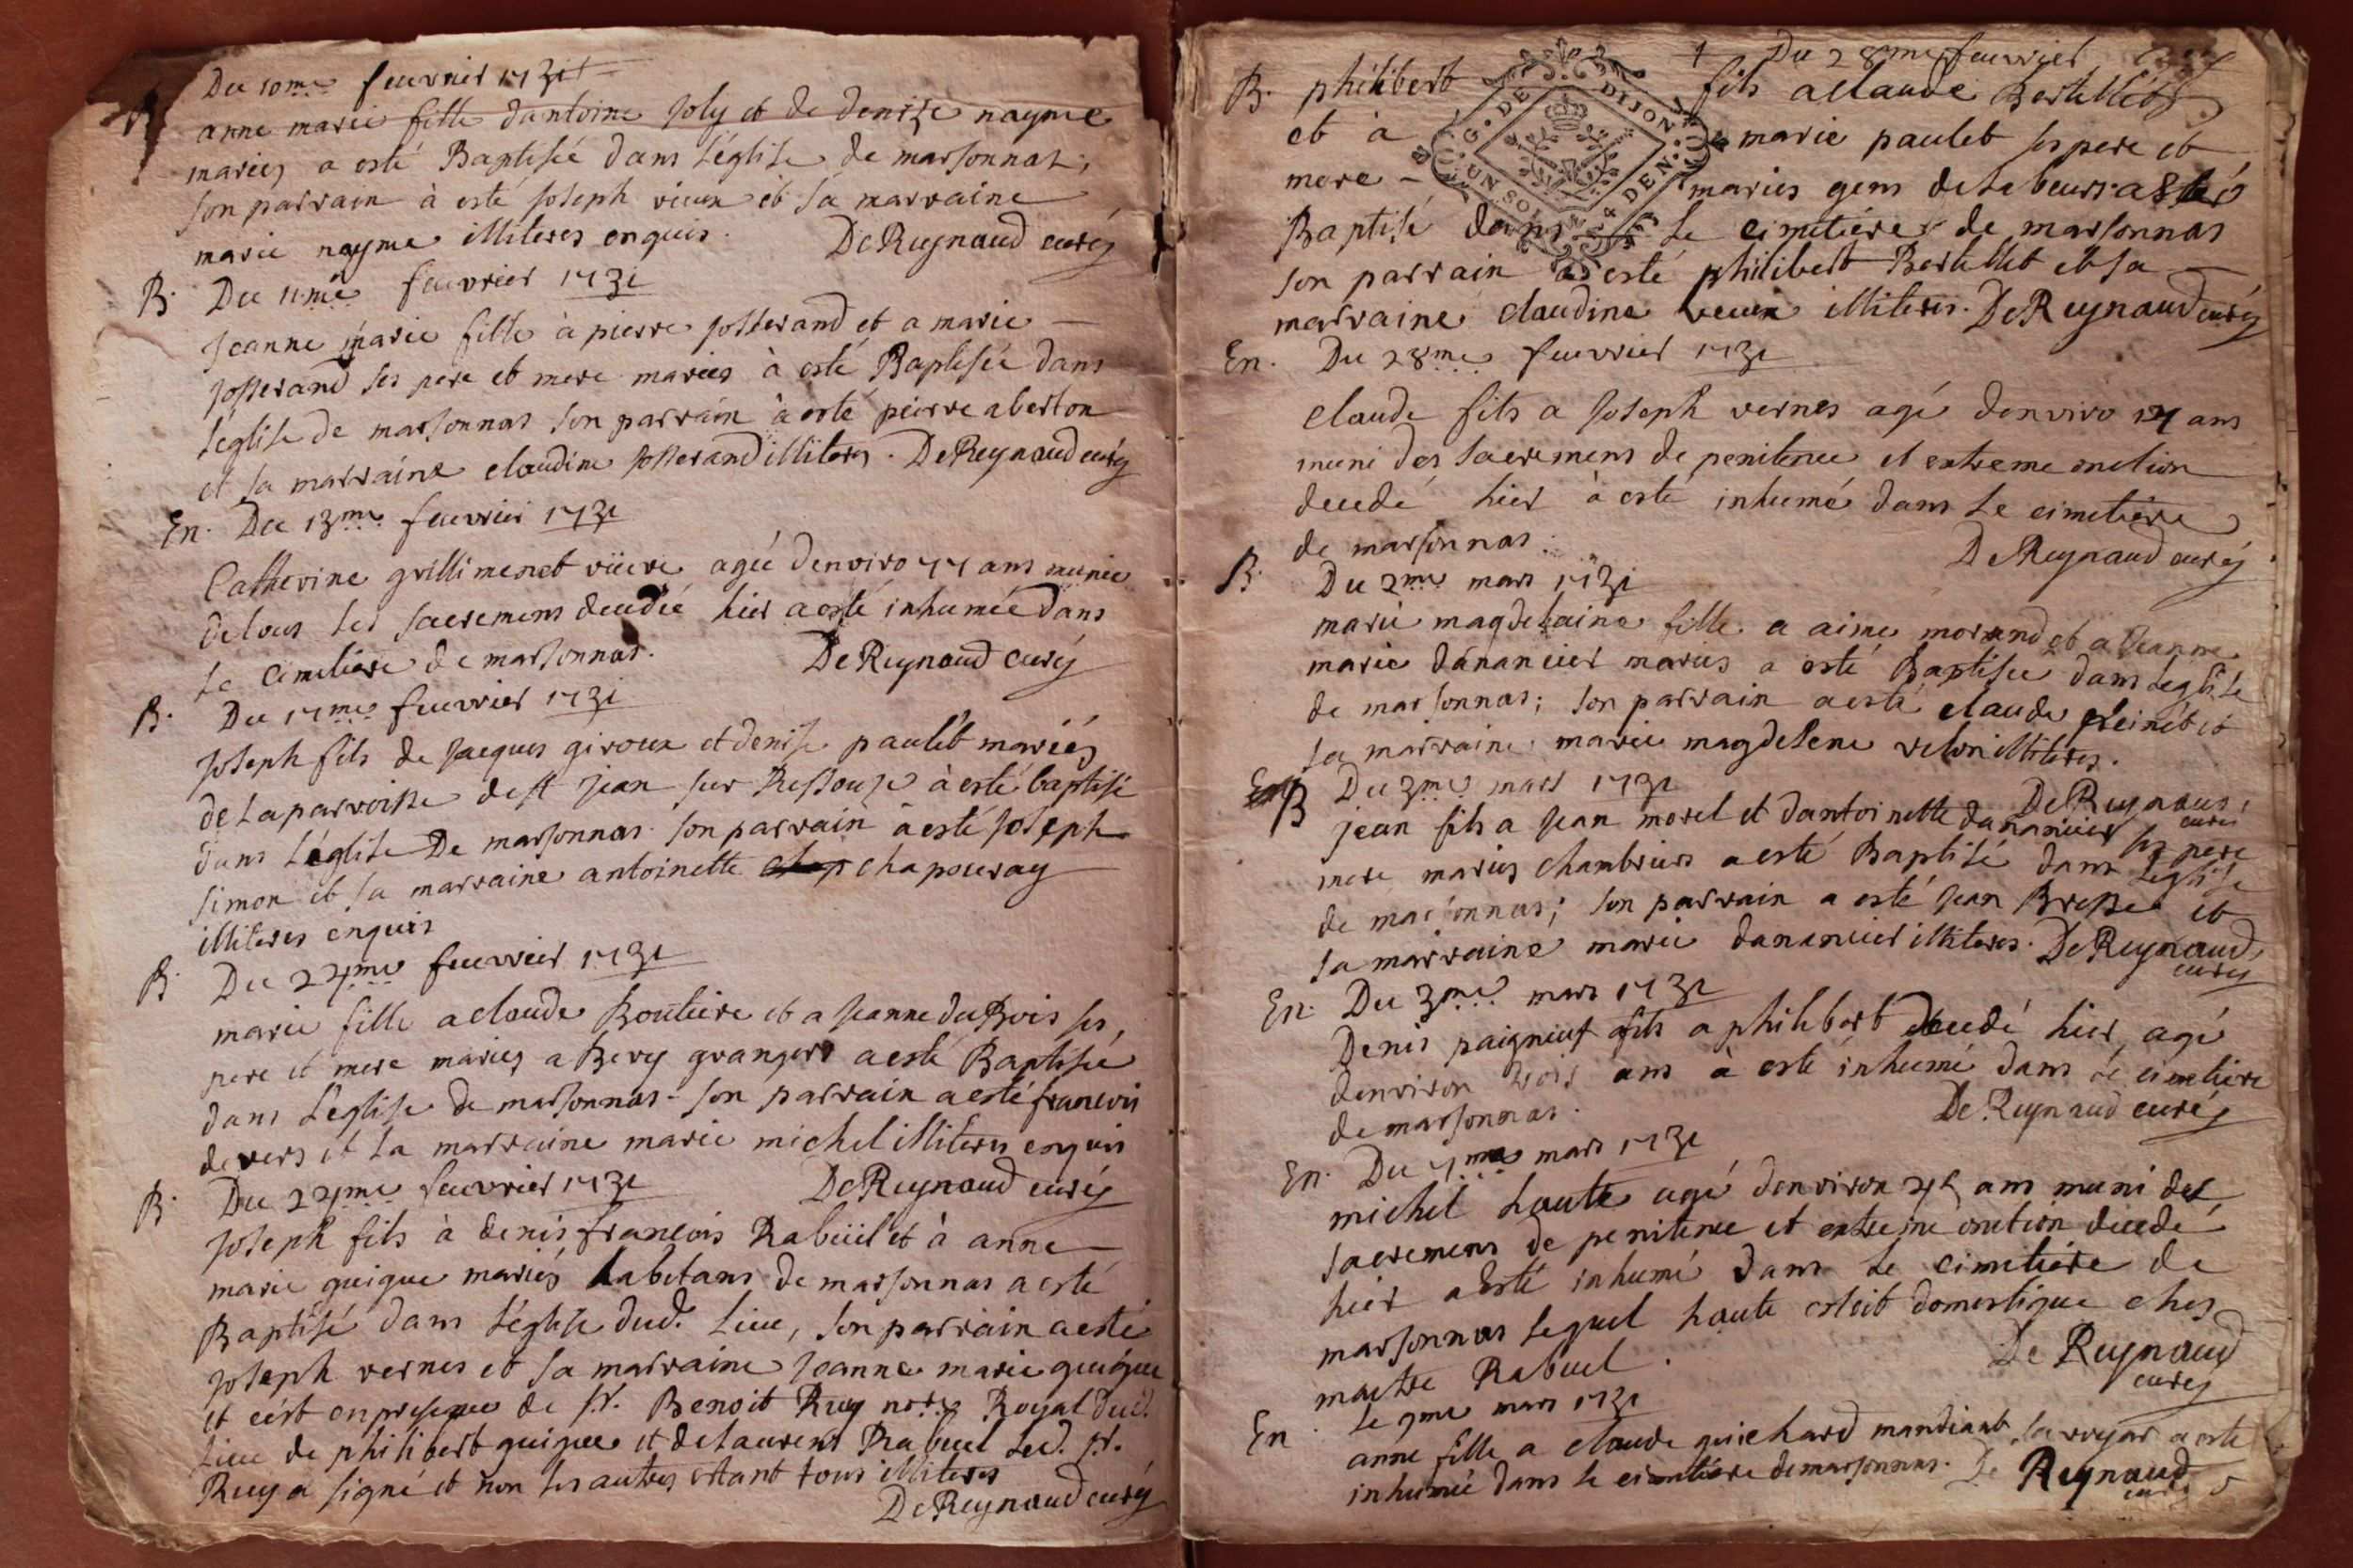 Du 10me feuvrier 1731
B. anne marie fille dantoine Joly et de denise nayme
mariez a esté Baptisée dans l'église de marsonnas;
son parrain à esté Joseph vieux et sa marraine
marie nayme illiteres enquis. DeReynaud curéz
B. Du 11.me feuvrier 1731
Jeanne marie fille à pierre Josserand et a marie
Josserand ses pere et mere mariez à esté Baptisée dans
l'église de marsonnas son parrain à esté peirre aberton
et sa marraine claudine Josserand illiteres. DeReynaud curéz
En. Du 13me feuvrier 1731
Catherine grillimenet viieve agée denviro 77 ans munie
detous les sacremens decedée hier a esté inhumée dans
le cimetiere de marsonnas. DeReynaud curéz
B. Du 17me feuvrier 1731
Joseph fils de Jacques giroux et denise paulet mariéz
de la parroisse de st jean sur Ressouze à esté baptisé
dans l'église De marsonnas son parrain à esté Joseph
simon et sa marraine antoinette chapouray
illiteres enquis
B. Du 24me feuvrier 1731
marie fille a claude Boutiere et a Jeanne du Bois ses
pere et mere mariez a Berey grangers a esté Baptisée
dans L'église de marsonnas - son parrain a esté francois
devers et sa marraine marie michel illiteres enquis
B. Du 24me feuvrier 1731 DeReynaud curéz
Joseph fils à denis francois Rabüil et à anne
marie guigue mariés habitans de marsonnas a esté
Baptisé dans l'église dud. Lieu, son parrain a esté
Joseph vernes et sa marraine Jeanne marie guigue
et cest en presence de sr. Benoit Ruy nore Royal dud.
Lieu de philibert guigue et de Laurent Rabuel Led. sr.
Ruy a signé et non les autres estant tous illiteres
DeReynaud curéz
1 Du 28me feuvrier
B. philibert fils a claude Bertellet
et à marie paulet ses pere et
mere - mariés gens de labeur a esté
G. DE DIJON
UN SOL 4 DEN.
Baptisé dans le cimetiere de marsonnas
son parrain a esté philibert Bertellet et sa
marraine claudine vieux illiteres. DeReynaud curéz
En. Du 28me feuvrier 1731
claude fils a Joseph vernes agé denviro 14 ans
muni des sacremens de penitence et extreme onction
decedé hier à esté inhumé dans le cimetiere
de marsonnas. DeReynaud curéz
B. Du 2me mars 1731
marie magdelaine fille a aimé morand et a Jeanne
marie dananciet mariés a esté Baptisée dans l'église
de marsonnas; son parrain a esté claude
sa marraine marie magdelene illiteres.
B Du 3me mars 1731 DeReynaud, curé
jean fils a Jean morel et dantoinette dananciet ses pere
mere mariés chambriers a esté Baptisé dans l'église
de marsonnas; son parrain a esté Jean Bresse et
sa marraine marie dananciet illiteres. DeReynaud,
curéz
En. Du 3me mars 1731
Denis paigneuf fils a philibert decedé hier, agé
denviron trois ans à esté inhumé dans le cimetiere
de marsonnas. DeReynaud curéz
En. Du 7me mars 1731
michel haute agé denviron ans muni des
sacremens de penitence et extreme onction decedé
hier a esté inhumé dans le cimetiere de
marsonnas lequel haute estoit domestique ches
maitre Rabuel. De Reynaud
curéz
En. Le 9me mars 1731
anne fille a claude guichard mandiant a esté
inhumée dans le cimetiere de marsonnas. De Reynaud
curéz